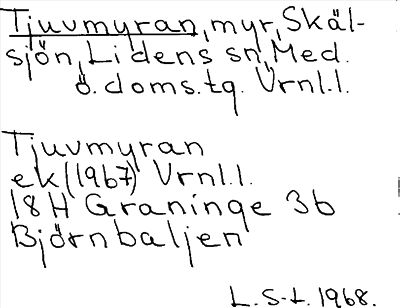 Tjuvmyran, myr, Skäl-
sjön, Lidens sn, Med.
ö. doms.tg. Vrnl.l.
Tjuvmyran
ek (1967) Vrnl.l.
18H Graninge 3b
Björnbaljen
L.S-L. 1968.